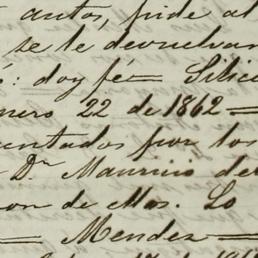 autos, pide al
se le devuelvan
: doy fé=
nero 22 de 1862=
entados por los
Dn Mauricio de
on de Mos. Lo
= Mendez =